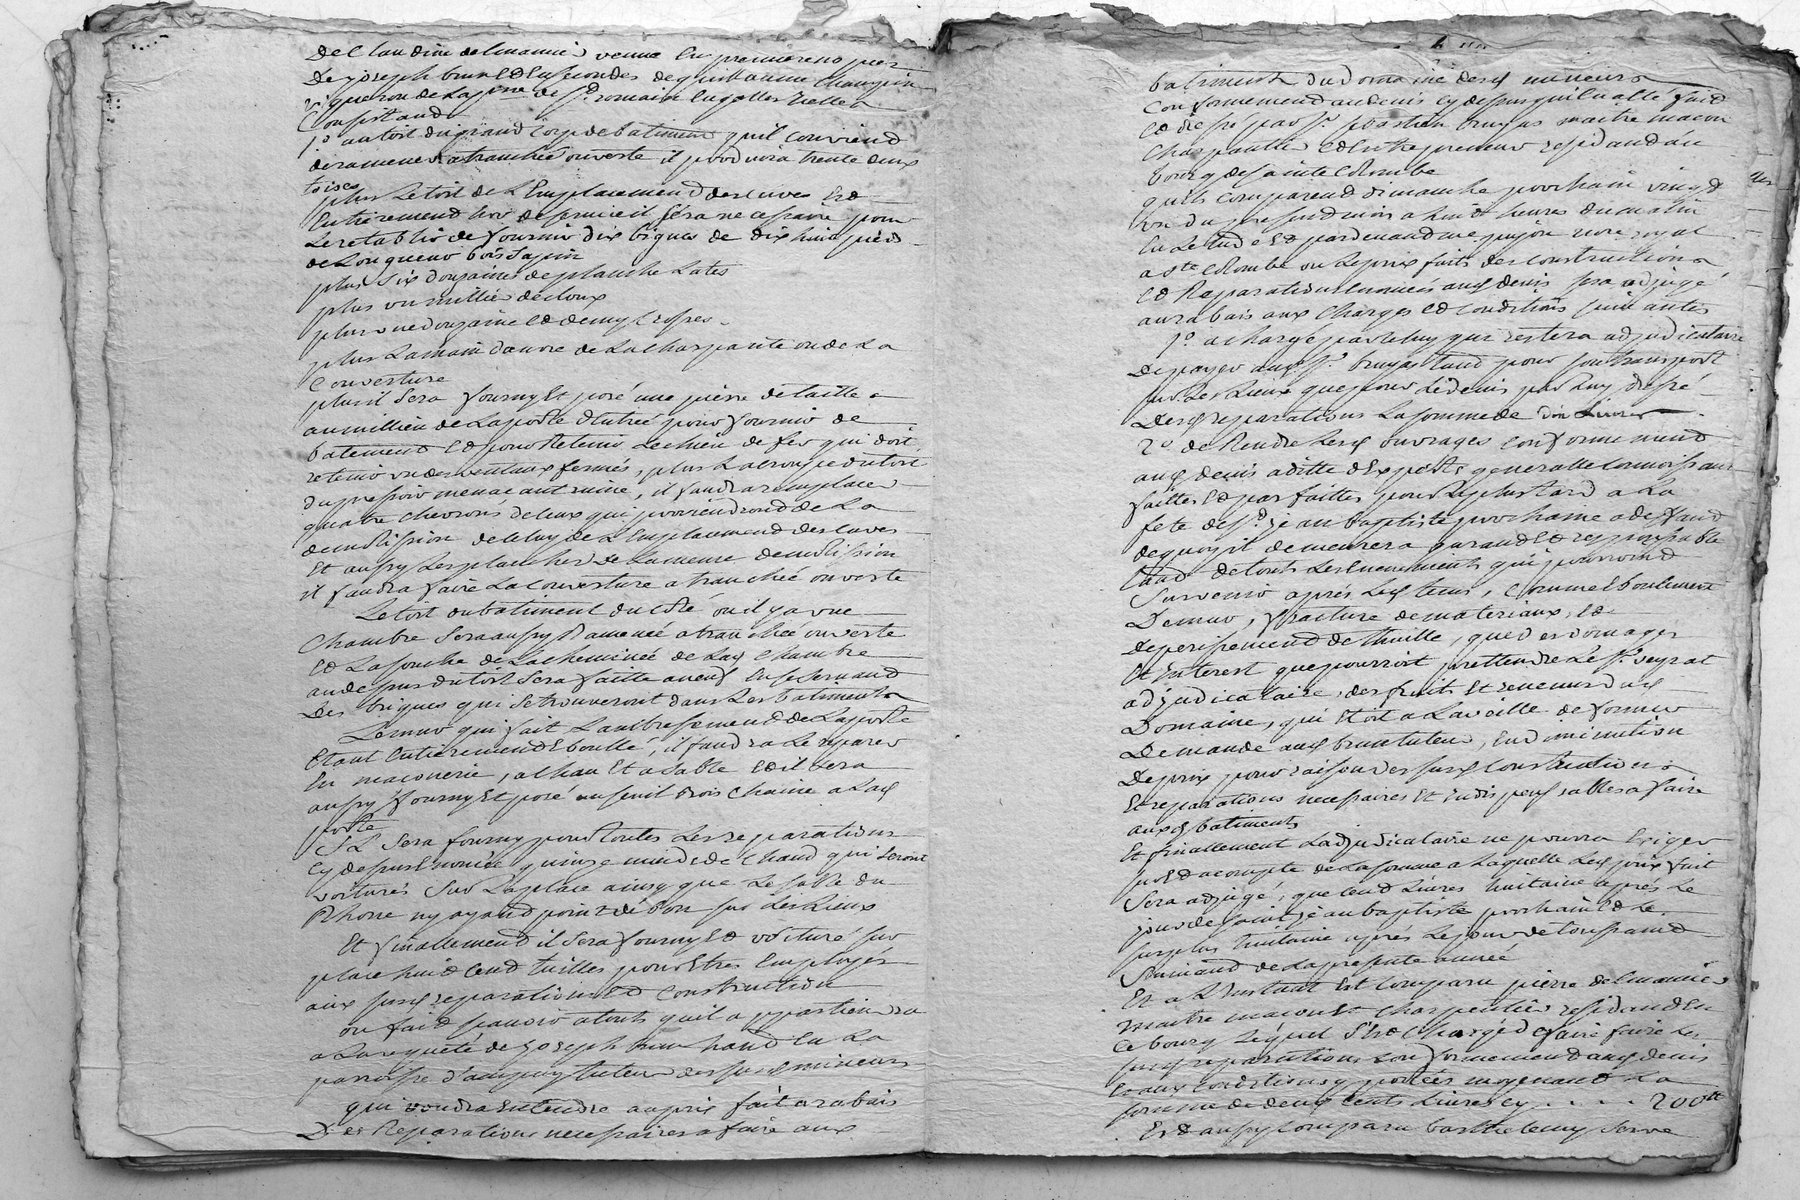 De Claudine delmaniè veuve en premieres nopces
De Joseph brun et en secondes de guillaume Champin
vigneron de la psse de St romain en galles icelles
Consistand
1o au toit du grand corps de batiment qu'il conviend
de ramener a tranchée ouverte il y pourvoira trente deux
toises
plus Le toit de L'Emplacement des cuves Est
Entierement hors de service il sera necessaire pour
Le retablir de fournir dix bigues de dix huit pieds
de Longueur bois sapin
plus six douzaines de planche Lates
plus un millier de cloux
plus une douzaine et demy crosses
plus La main d'œuvre de La charpante ou de La
Couverture
plus il sera fourny Et posé une pierre de taille
au millieu de La porte d'Entrée pour fournir de
batement Et pour Retenir Le chien de fer qui doit
retenir un des venteaux fermés, plus La croupe du toit
du pressoir menacant ruine, il faudra remplacer
quatre chevrons de ceux qui proviendront de La
demolission de celuy de L'Emplacement des cuves
Et aussy Les planches de La meme demolission
il faudra faire La couverture a tranchée ouverte
Le toit du batiment du côté ou il y a une
Chambre sera aussy Ramenée a tranchée ouverte
Et La souche de La cheminée de Lad Chambre
au dessus du toit sera faitte a neuf En se servand
Des briques qui se trouveront dans Les batiments
Le mur qui fait L'ambrassement de La porte
Etant Entierement Eboullé, il faudra Le reparer
En maçonerie, a chau Et a sable Et il sera
aussy fourny Et posé un seuil bois chaine a Lad
porte
Il sera fourny pour toutes Les reparations
Cy dessus Enoncée quinze muids de chaud qui seront
voiturés sur La place ainsy que Le sable du
Rhone ny ayand point de bon sur Les Lieux
Et finallement il sera fourny Et voituré sur
place huit cend tuilles pour Etres Employes
aux susd reparations Et construction
on fait scavoir a touts qu'il appartiendra
a La requete de Joseph brun hand En La
paroisse d'ampuy tuteur des susd mineurs
qui voudra Entendre au prix fait a rabais
Des Reparations necessaires a faire aux
batiments du Domaine desd mineurs
Conformemend au devis cy dessus qui En a été faid
Et dressé par Sr sebastien bruyas maitre maçon
Charpantier Et Entrepreneur residand au
bourg de Sainte Colombe
qu'ils Comparend dimanche prochain vingt
un du presend mois a huit heures du matin
En L'etude Et pardevand me pinjon nore royal
a Ste Colombe ou Le prix faits des constructions
Et Reparations Enoncés aud devis sera adjugé
au rabais aux charges Et conditions suivantes
1o a chargé par celuy qui restera adjudicataire
De payer aud Sr bruyas tand pour son transport
sur Les Lieux que pour Le devis par Luy dressé
Desd reparations La somme de dix Livres
2o de Rendre Lesd ouvrages conformemend
aud devis a ditte d'Experts generallement parfaits
faittes Et parfaittes pour Le plus tard a La
fete de St jean baptiste prochaine a deffaud
de quoy il demeurera garand Et responsable
tand de touts Les Evenements qui pourroind
survenir après Led tems, comme Eboulement
De mur, fracture de materiaux, Et
deperissemend de thuille, que des domages
Et interest que pourroit prettendre Le Sr seyrat
adjudicataire des fruits Et revenus dud
Domaine, qui Etoit a La veille de former
Demande aud brun tuteur, En diminution
De prix pour raison des susd constructions
Et reparations necessaires Et indispensables a faire
auxd batiments
Et finallement L'adjudicataire ne pourra Exiger
sur Et a compte de La somme a Laquelle Led prix fait
sera adjugé, que cend Livres huitaine après Le
jour de saint jean baptiste prochain Et Le
surplus huitaine après Le jour de toussaind
suivand de La presente année
Et a L'instant Est Comparu pierre delmanie
maitre maçon Et charpentier residand En
Ce bourg Lequel s'Est chargé de faire faire Les
susd reparations conformemend aud devis
Et aux conditions y portées moyenand La
somme de deux cents Livres cy . . . . 200tt
Est aussy Comparu barthelemy serve